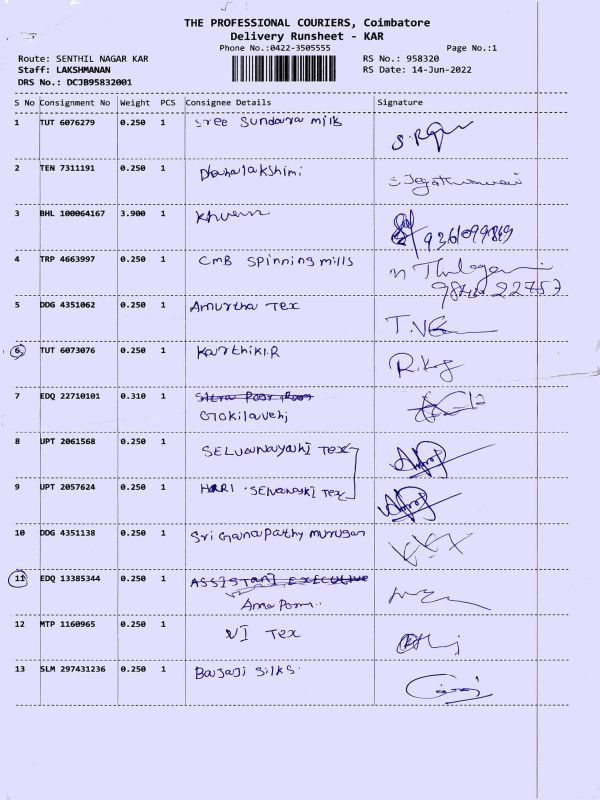 THE PROFESSIONAL COURIERS, Coimbatore
Delivery Runsheet - KAR
Phone No.:0422-3505555
Page No.:1
Route: SENTHIL NAGAR KAR
RS No.: 958320
Staff: LAKSHMANAN
RS Date: 14-Jun-2022
DRS No.: DCJB95832001
S No Consignment No Weight PCS Consignee Details Signature
1 TUT 6076279 0.250 1 Sree Sundara mills
2 TEN 7311191 0.250 1 Dhanalakshimi
3 BHL 100064167 3.900 1
4 TRP 4663997 0.250 1 CMB Spinning mills
5 DDG 4351062 0.250 1 Amurtha Tex
6 TUT 6073076 0.250 1 Karthiki.R
7 EDQ 22710101 0.310 1
Gokilaveni
8 UPT 2061568 0.250 1 SELVANAYAKI TEX
9 UPT 2057624 0.250 1 HARI. SELVANAYKI TEX
10 DDG 4351138 0.250 1 Sri Ganapathy murugan
11 EDQ 13385344 0.250 1 ASSISTANT EXECUTIVE
12 MTP 1160965 0.250 1 VI TEX
13 SLM 297431236 0.250 1 Balaji Silks